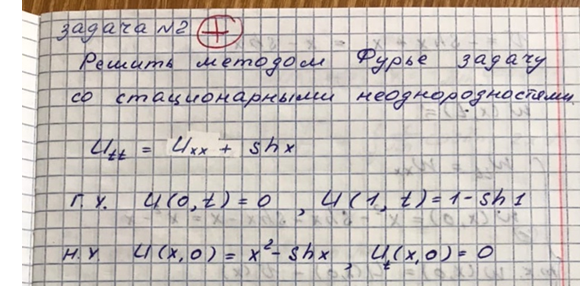 задача №2 +
Решить методом Фурье задачу
со стационарными неоднородностями.
Utt = Uxx + shx
Г.У. U(0,t)=0 , U(1,t)=1-sh1
Н.У. U(x,0)=x²-shx , Ut(x,0)=0